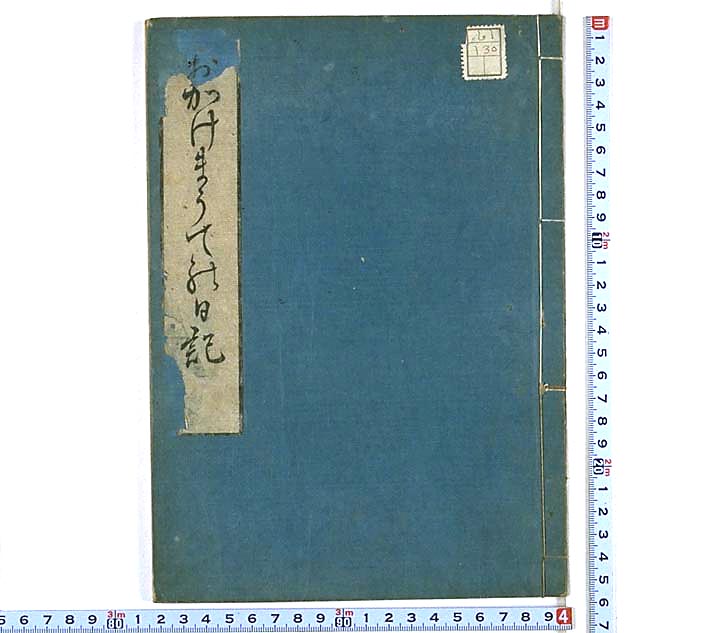 おかけまうての日記
261
130
m 1 2 3 4 5 6 7 8 9 10 1 2 3 4 5 6 7 8 9 20 1 2 3 4 5 6 7
5 6 7 8 9 80 1 2 3 4 5 6 7 8 9 90 1 2 3 4 5 6 7 8 9 4